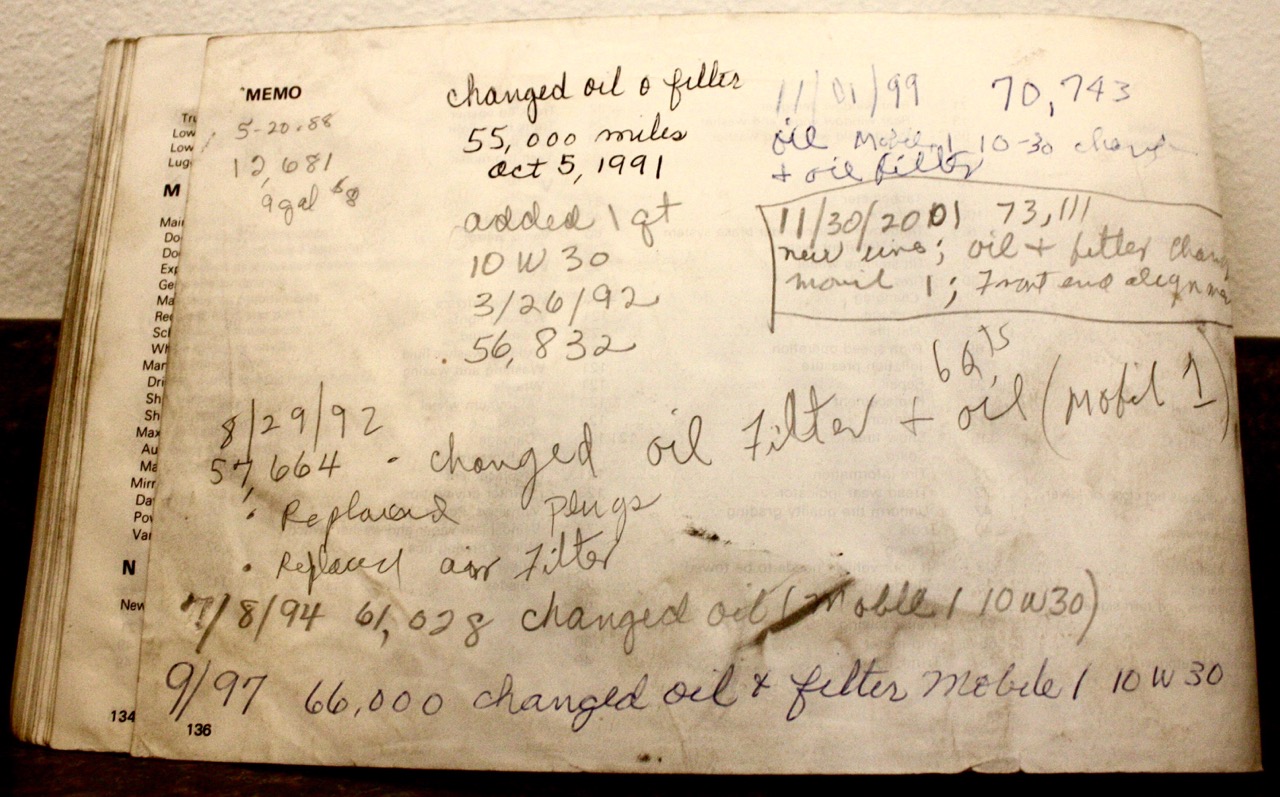 MEMO
5-20-88
12,681
9 gal
changed oil & filter
55,000 miles
Oct 5, 1991
added 1 qt
10 W 30
3/26/92
56,832
11/01/99 70,743
oil Mobil 1 10-30 change
+ oil filter
11/30/2001 73,111
oil + filter chan
movil 1; Front end alignmen
6 qts
8/29/92
57,664 - changed oil Filter + oil (Mobil 1)
• Replaced plugs
• Replaced air Filter
7/8/94 61,028 changed oil (Moble 1 10W30)
9/97 66,000 changed oil & filter Mobile 1 10 W 30
136
Tru
Low
Low
Lug
M
Mai
Do
Do
Exp
Ge
Ma
Rec
Sch
Wh
Mar
Dri
Sh
Sh
Max
Au
Ma
Mirr
Da
Pov
Var
N
New
134